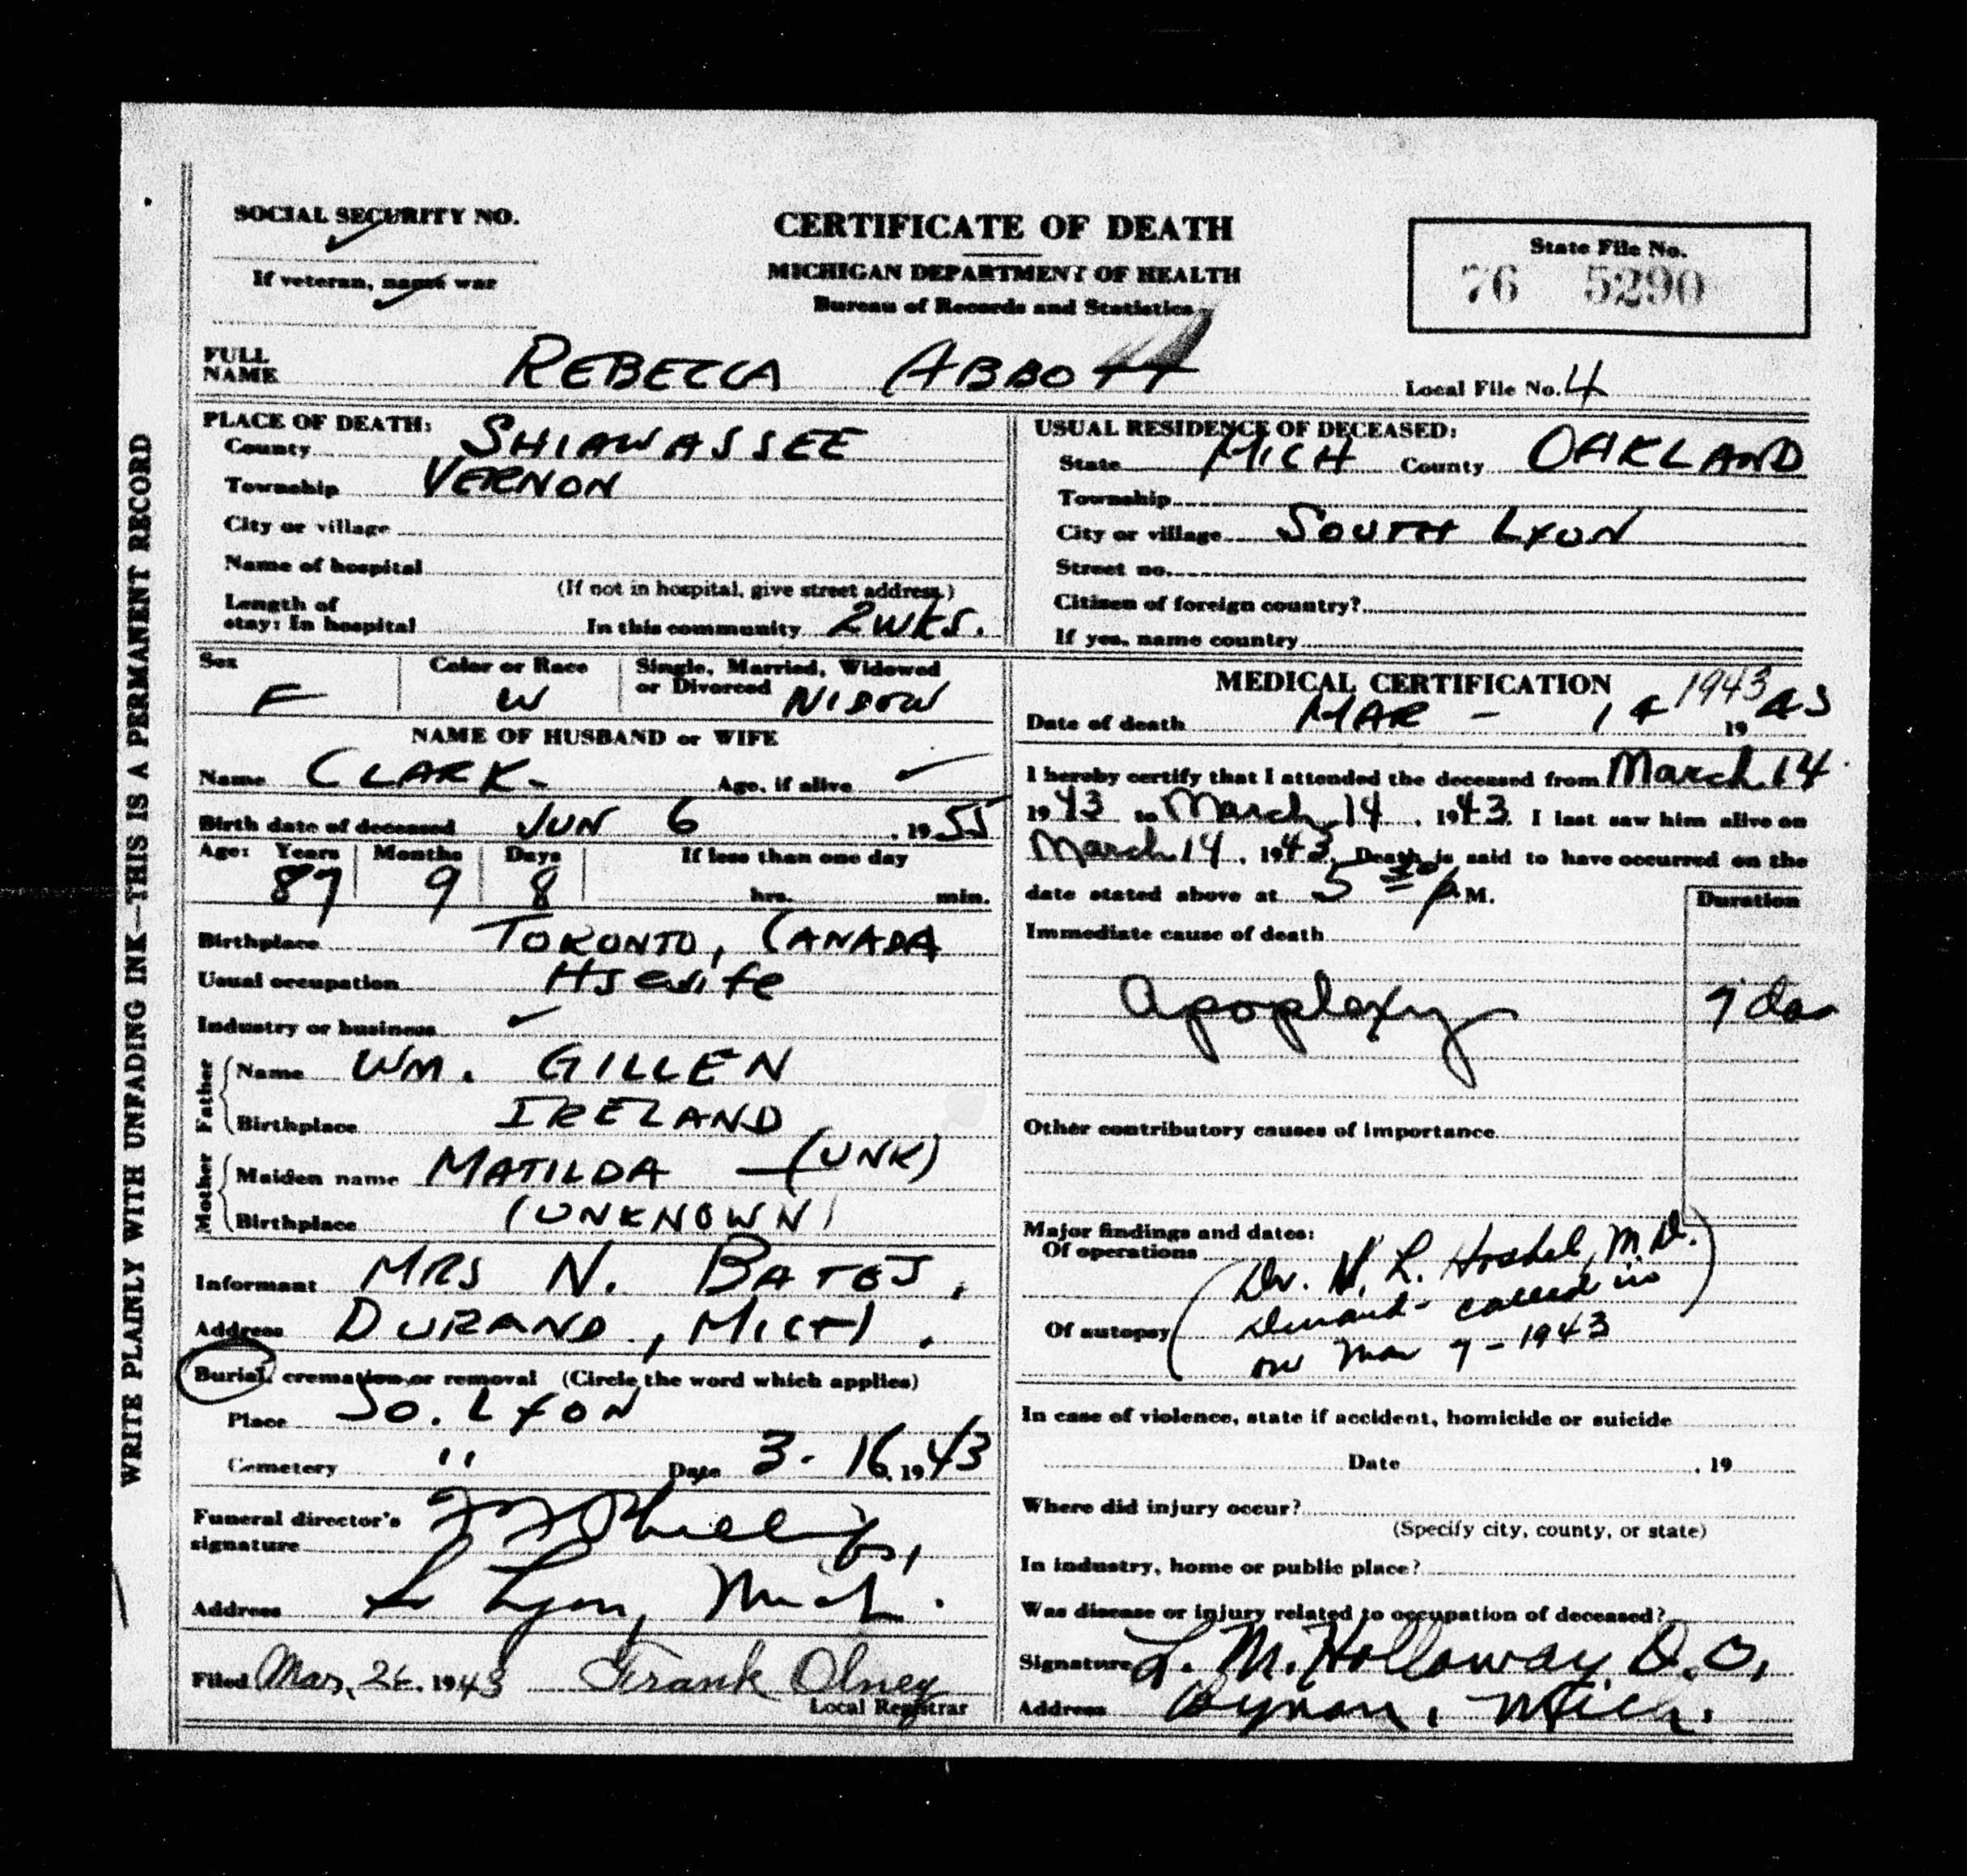 SOCIAL SECURITY NO.
If veteran, name war
CERTIFICATE OF DEATH
MICHIGAN DEPARTMENT OF HEALTH
Bureau of Records and Statistics
State File No.
76 5290
FULL NAME REBECCA ABBOTT
Local File No. 4
WRITE PLAINLY WITH UNFADING INK—THIS IS A PERMANENT RECORD
PLACE OF DEATH:
County SHIAWASSEE
Township VERNON
City or village
Name of hospital
(If not in hospital, give street address.)
Length of stay: In hospital In this community 2 WKS.
USUAL RESIDENCE OF DECEASED:
State MICH County OAKLAND
Township
City or village SOUTH LYON
Street no.
Citizen of foreign country?
If yes, name country
Sex F
Color or Race W
Single, Married, Widowed or Divorced WIDOW
NAME OF HUSBAND or WIFE
Name CLARK - Age, if alive
Birth date of deceased JUN 6, 1955
Age: Years Months Days If less than one day
87 9 8 hrs. min.
Birthplace TORONTO, CANADA
Usual occupation Hsewife
Industry or business
Father
Name WM. GILLEN
Birthplace IRELAND
Mother
Maiden name MATILDA — (UNK)
Birthplace (UNKNOWN)
Informant MRS N. BATES,
Address DURAND, MICH.
Burial, cremation or removal (Circle the word which applies)
Place SO. LYON
Cemetery " Date 3-16, 1943
Funeral director's signature Phillips,
Address So Lyon, Mich.
Filed Mar. 26. 1943 Frank Olney
Local Registrar
MEDICAL CERTIFICATION
1943
Date of death MAR - 14 19 43
I hereby certify that I attended the deceased from March 14
1943 to March 14, 1943. I last saw him alive on
March 14, 1943. Death is said to have occurred on the
date stated above at 5 30 P M.
Duration
Immediate cause of death
Apoplexy 7 da
Other contributory causes of importance
Major findings and dates:
Of operations
Of autopsy
(Dr. H. L. M.D.
Durand - called in
on Mar 7 - 1943)
In case of violence, state if accident, homicide or suicide
Date , 19
Where did injury occur?
(Specify city, county, or state)
In industry, home or public place?
Was disease or injury related to occupation of deceased?
Signature L. M. Holloway D.O.
Address Byron, Mich.